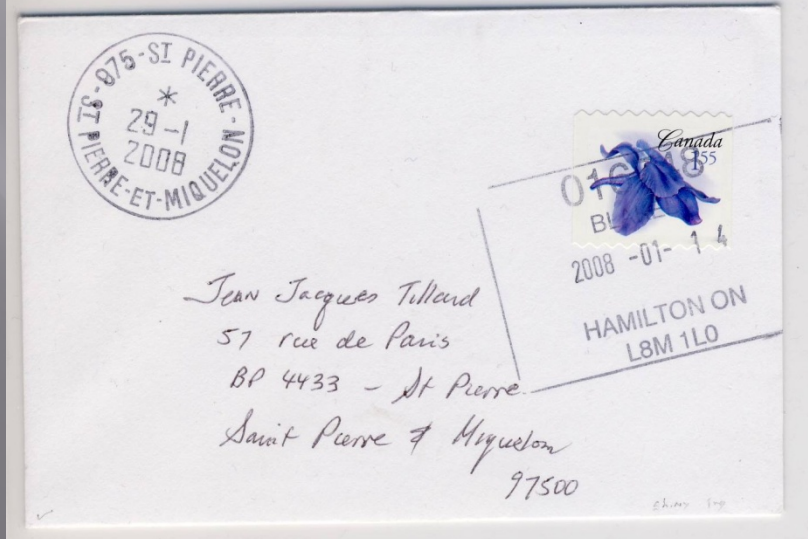 975 - ST PIERRE -
*
29 -1
2008
ST PIERRE-ET-MIQUELON
Canada
1.55
2008 -01- 14
HAMILTON ON
L8M 1L0
Jean Jacques Tillard
57 rue de Paris
BP 4433 - St Pierre
Saint Pierre & Miquelon
97500